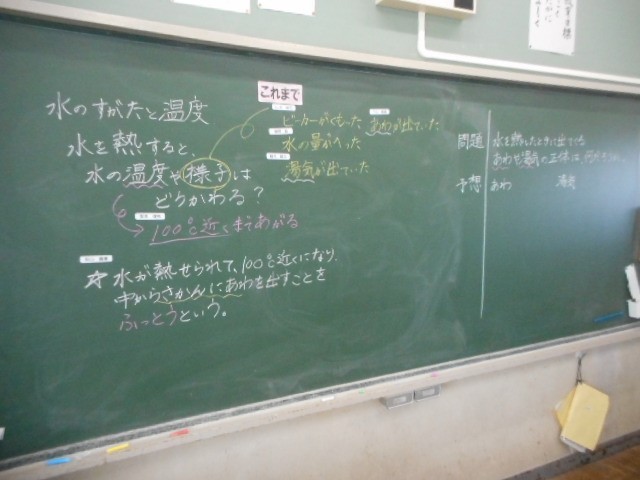 水のすがたと温度
水を熱すると、
水の温度や様子は
どうかわる？
100℃近くまであがる
☆水が熱せられて、100℃近くになり、
中からさかんにあわを出すことを
ふっとうという。
これまで
ビーカーがくもった あわが出ていた
水の量がへった
湯気が出ていた
問題 水を熱したときに出てくる
あわや湯気の正体は、何だろうか。
予想 あわ 湯気